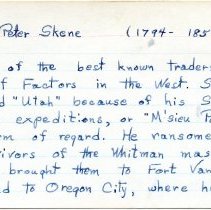 Peter Skene (1794-185
of the best known trader
f Factors in the West. S
d "Utah" because of his S
expeditions, or "M'sieu P
m of regard. He ransome
ivors of the Whitman mas
brought them to Fort Van
d to Oregon City, where h